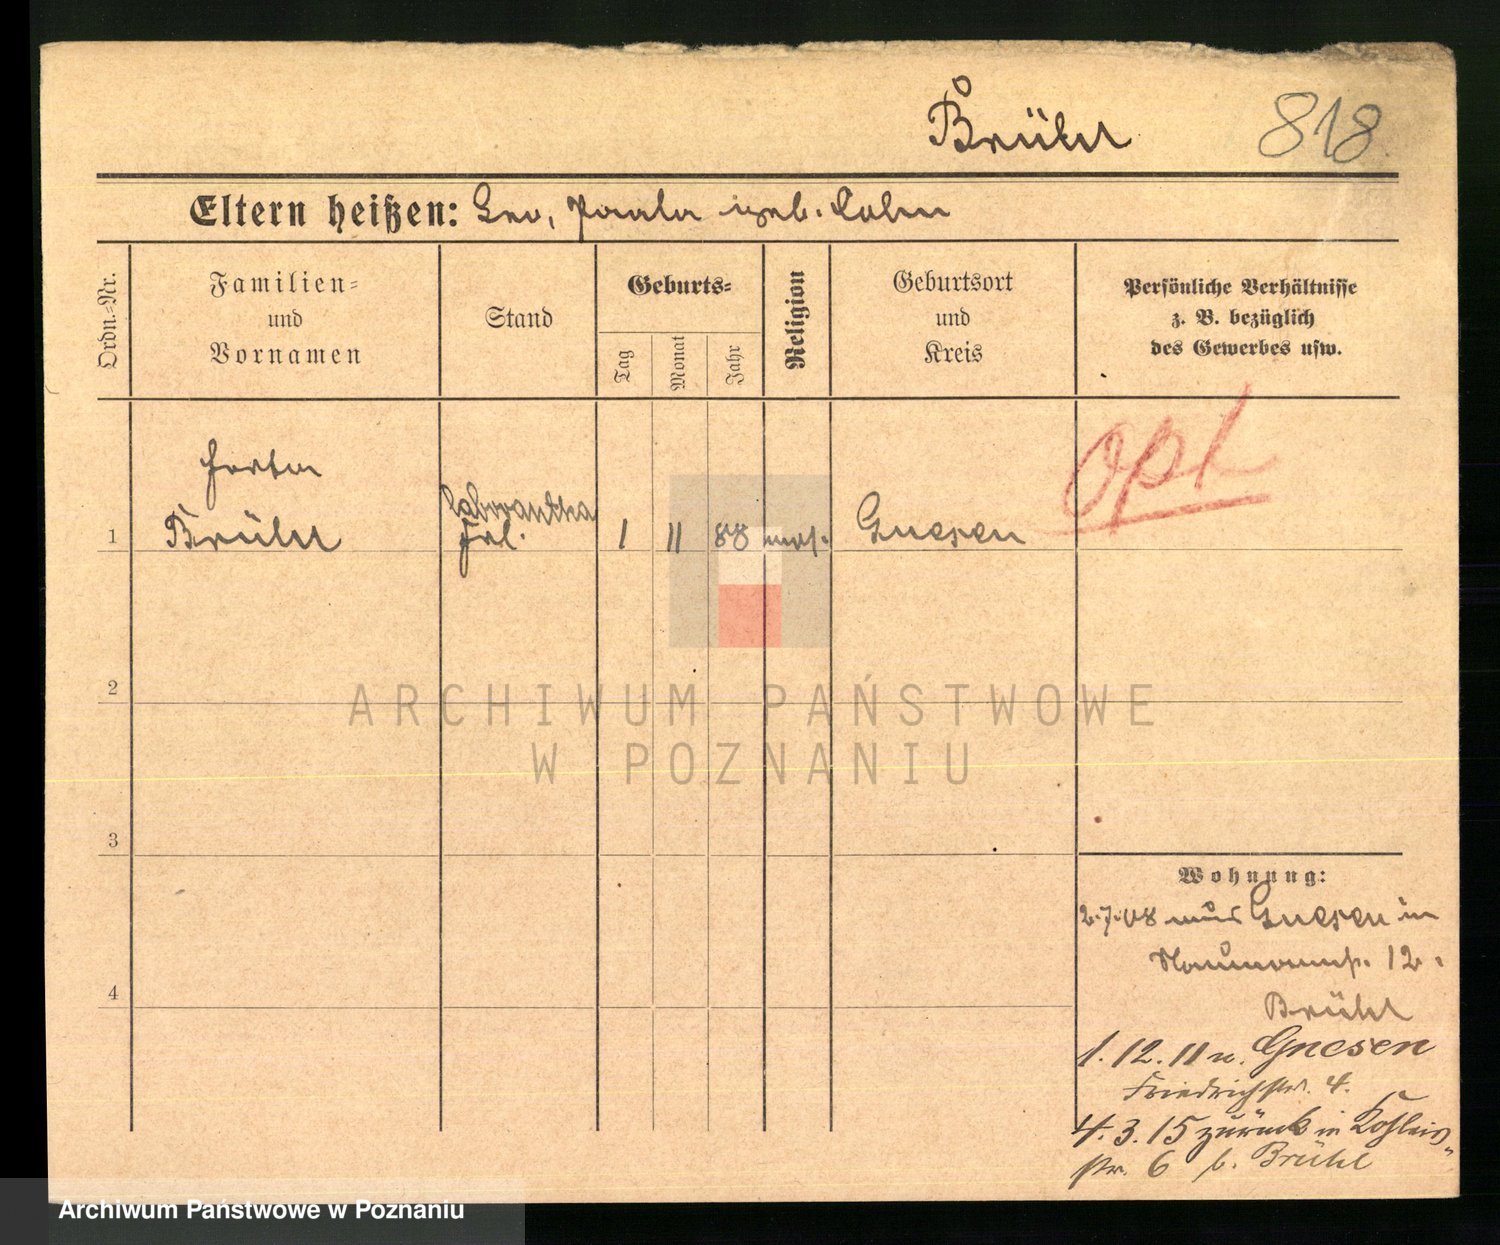 Brühl 818.
Eltern heißen: Leo, Paula geb. Cohn
Ordn.-Nr.
Familien-
und
Vornamen
Stand
Geburts-
Tag
Monat
Jahr
Religion
Geburtsort
und
Kreis
Persönliche Verhältnisse
z. B. bezüglich
des Gewerbes usw.
opl
Herta
Laborantka
1 Brühl Frl. 1 11 88 mos. Gnesen
2
3
4
Wohnung:
2.7.08 aus Gnesen in
Naumannstr. 12.
Brühl
1.12.11 n. Gnesen
Friedrichstr. 4.
4.3.15 zurück in
str. 6 b. Brühl
ARCHIWUM PAŃSTWOWE
W POZNANIU
Archiwum Państwowe w Poznaniu